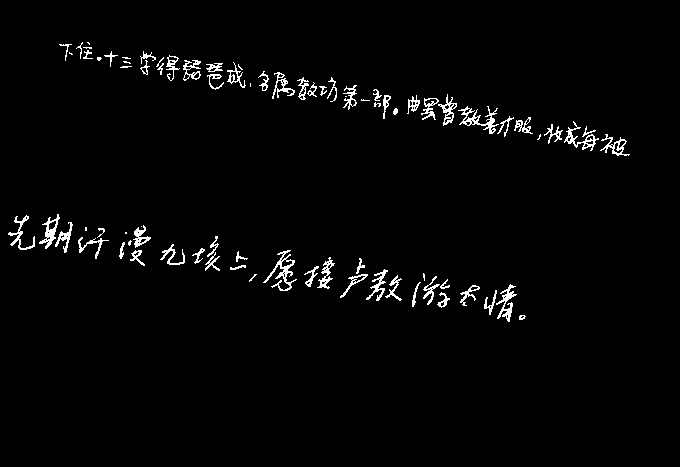 下住。十三学得琵琶成,名属教坊第一部。曲罢曾教善才服,妆成每被
先期汗漫九垓上,愿接卢敖游太情。